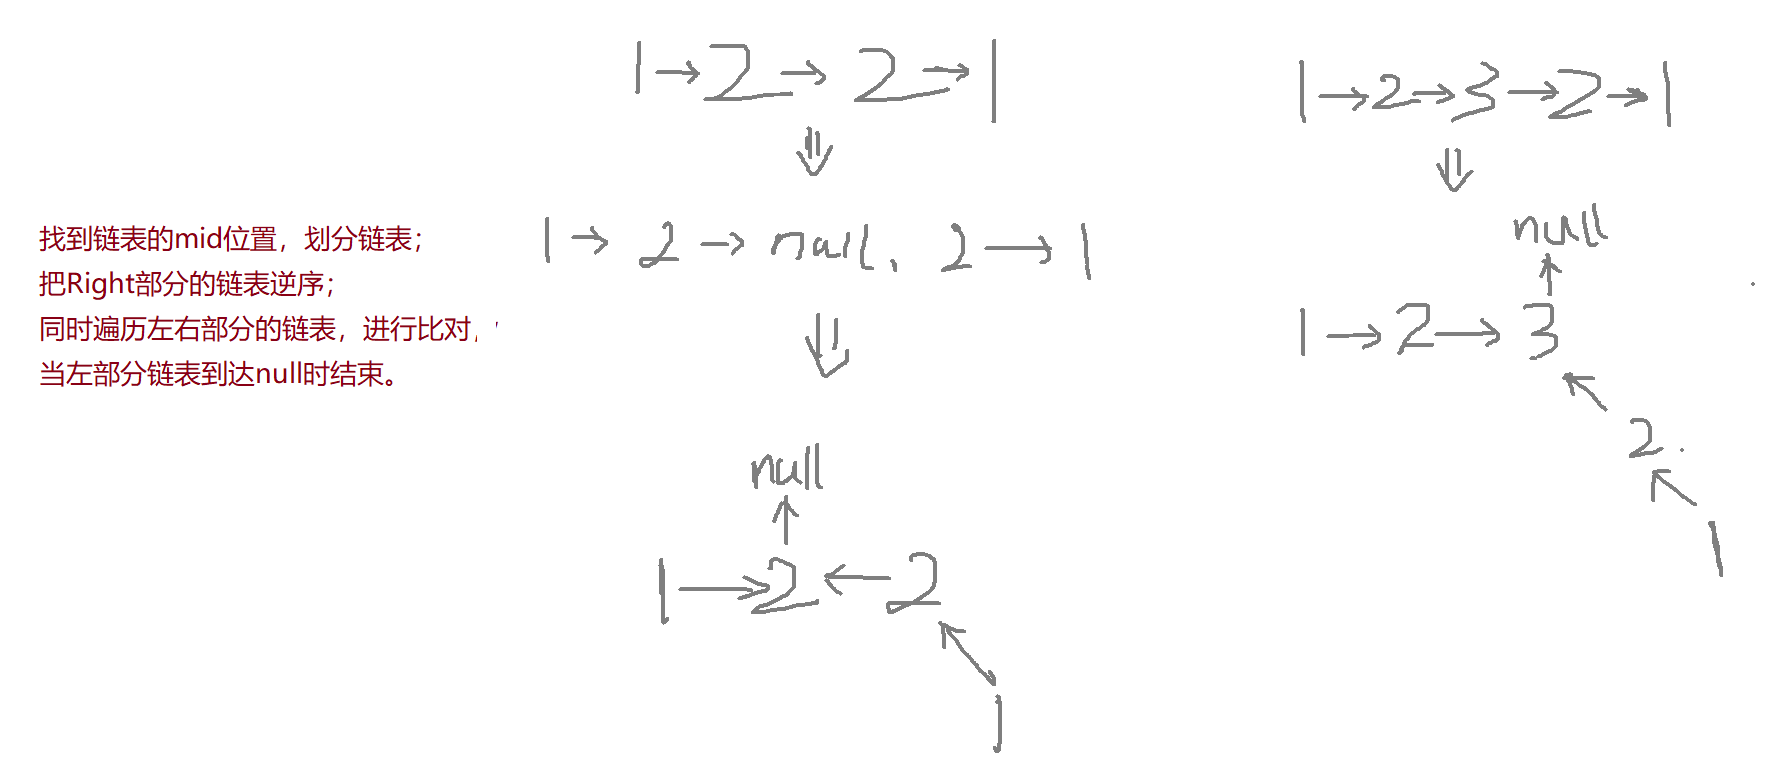 找到链表的mid位置，划分链表；
把Right部分的链表逆序；
同时遍历左右部分的链表，进行比对，
当左部分链表到达null时结束。
1→2→2→1
⇓
1→2→null、2→1
⇓
null
↑
1→2←2
↖
1
1→2→3→2→1
⇓
null
↑
1→2→3
↖
2
↖
1